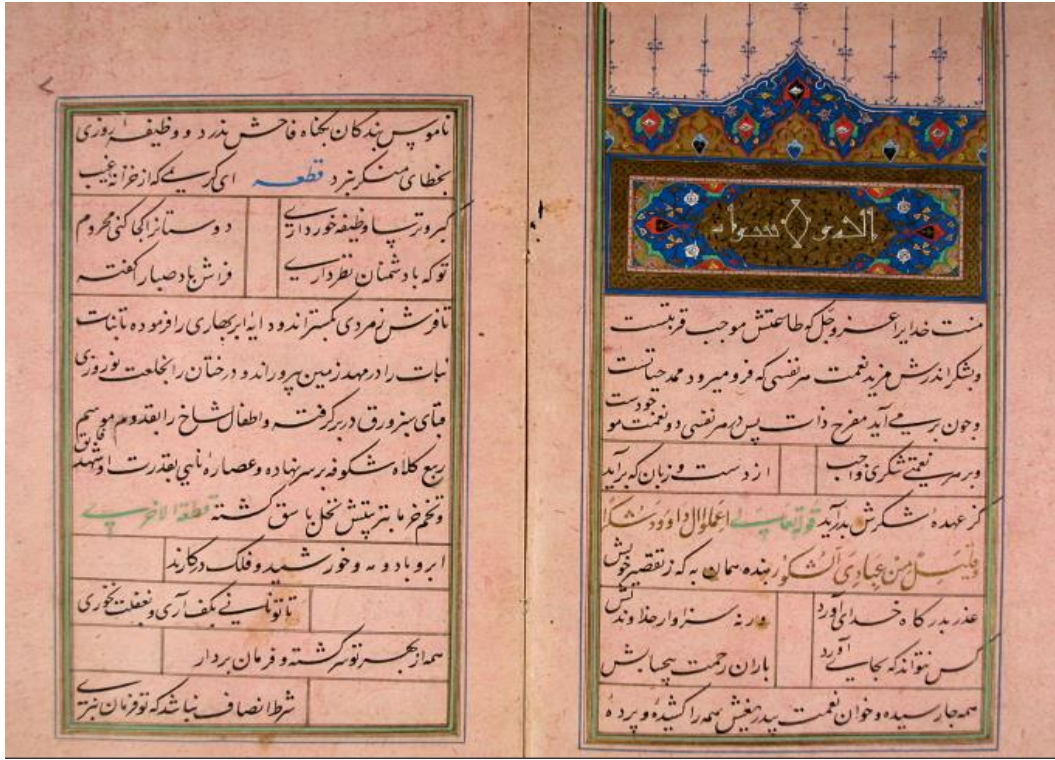 منت خدایرا عز و جل که طاعتش موجب قربتست
وبشکر اندرش مزید نعمت هر نفسی که فرو میرود ممد حیاتست
وچون برمی آید مفرح ذات پس در هر نفسی دو نعمت موجودست
وبر هر نعمتی شکری واجب از دست و زبان که برآید
کز عهده شکرش بدرآید قوله تعالی اعملوا آل داوود شکرا
وقلیل من عبادی الشکور بنده همان به که ز تقصیر خویش
عذر بدرگاه خدای آورد ورنه سزاوار خداوندیش
کس نتواند که بجای آورد باران رحمت بیحسابش
همه جا رسیده وخوان نعمت بیدریغش همه را کشیده و پرده
ناموس بندگان بگناه فاحش ندرد و وظیفه روزی
بخطای منکر نبرد قطعه ای کریمی که از خزانه غیب
گبر و ترسا وظیفه خور داری دوستانرا کجا کنی محروم
توکه با دشمنان نظر داری فراش باد صبا را گفته
تا فرش زمردی بگستراند و دایه ابر بهاری را فرموده تا بنات
نبات را در مهد زمین بپروراند و درختان را بخلعت نوروزی
قبای سبز ورق در بر گرفته و اطفال شاخ را بقدوم موسم
ربیع کلاه شکوفه بر سر نهاده وعصاره نایی بقدرت او شهد فایق
وتخم خرما بتربیتش نخل باسق گشته قطعة الاخری
ابر و باد و مه و خورشید و فلک در کارند
تا تو نانی بکف آری و بغفلت نخوری
همه از بهر تو سرگشته و فرمان بردار
شرط انصاف نباشد که تو فرمان نبری